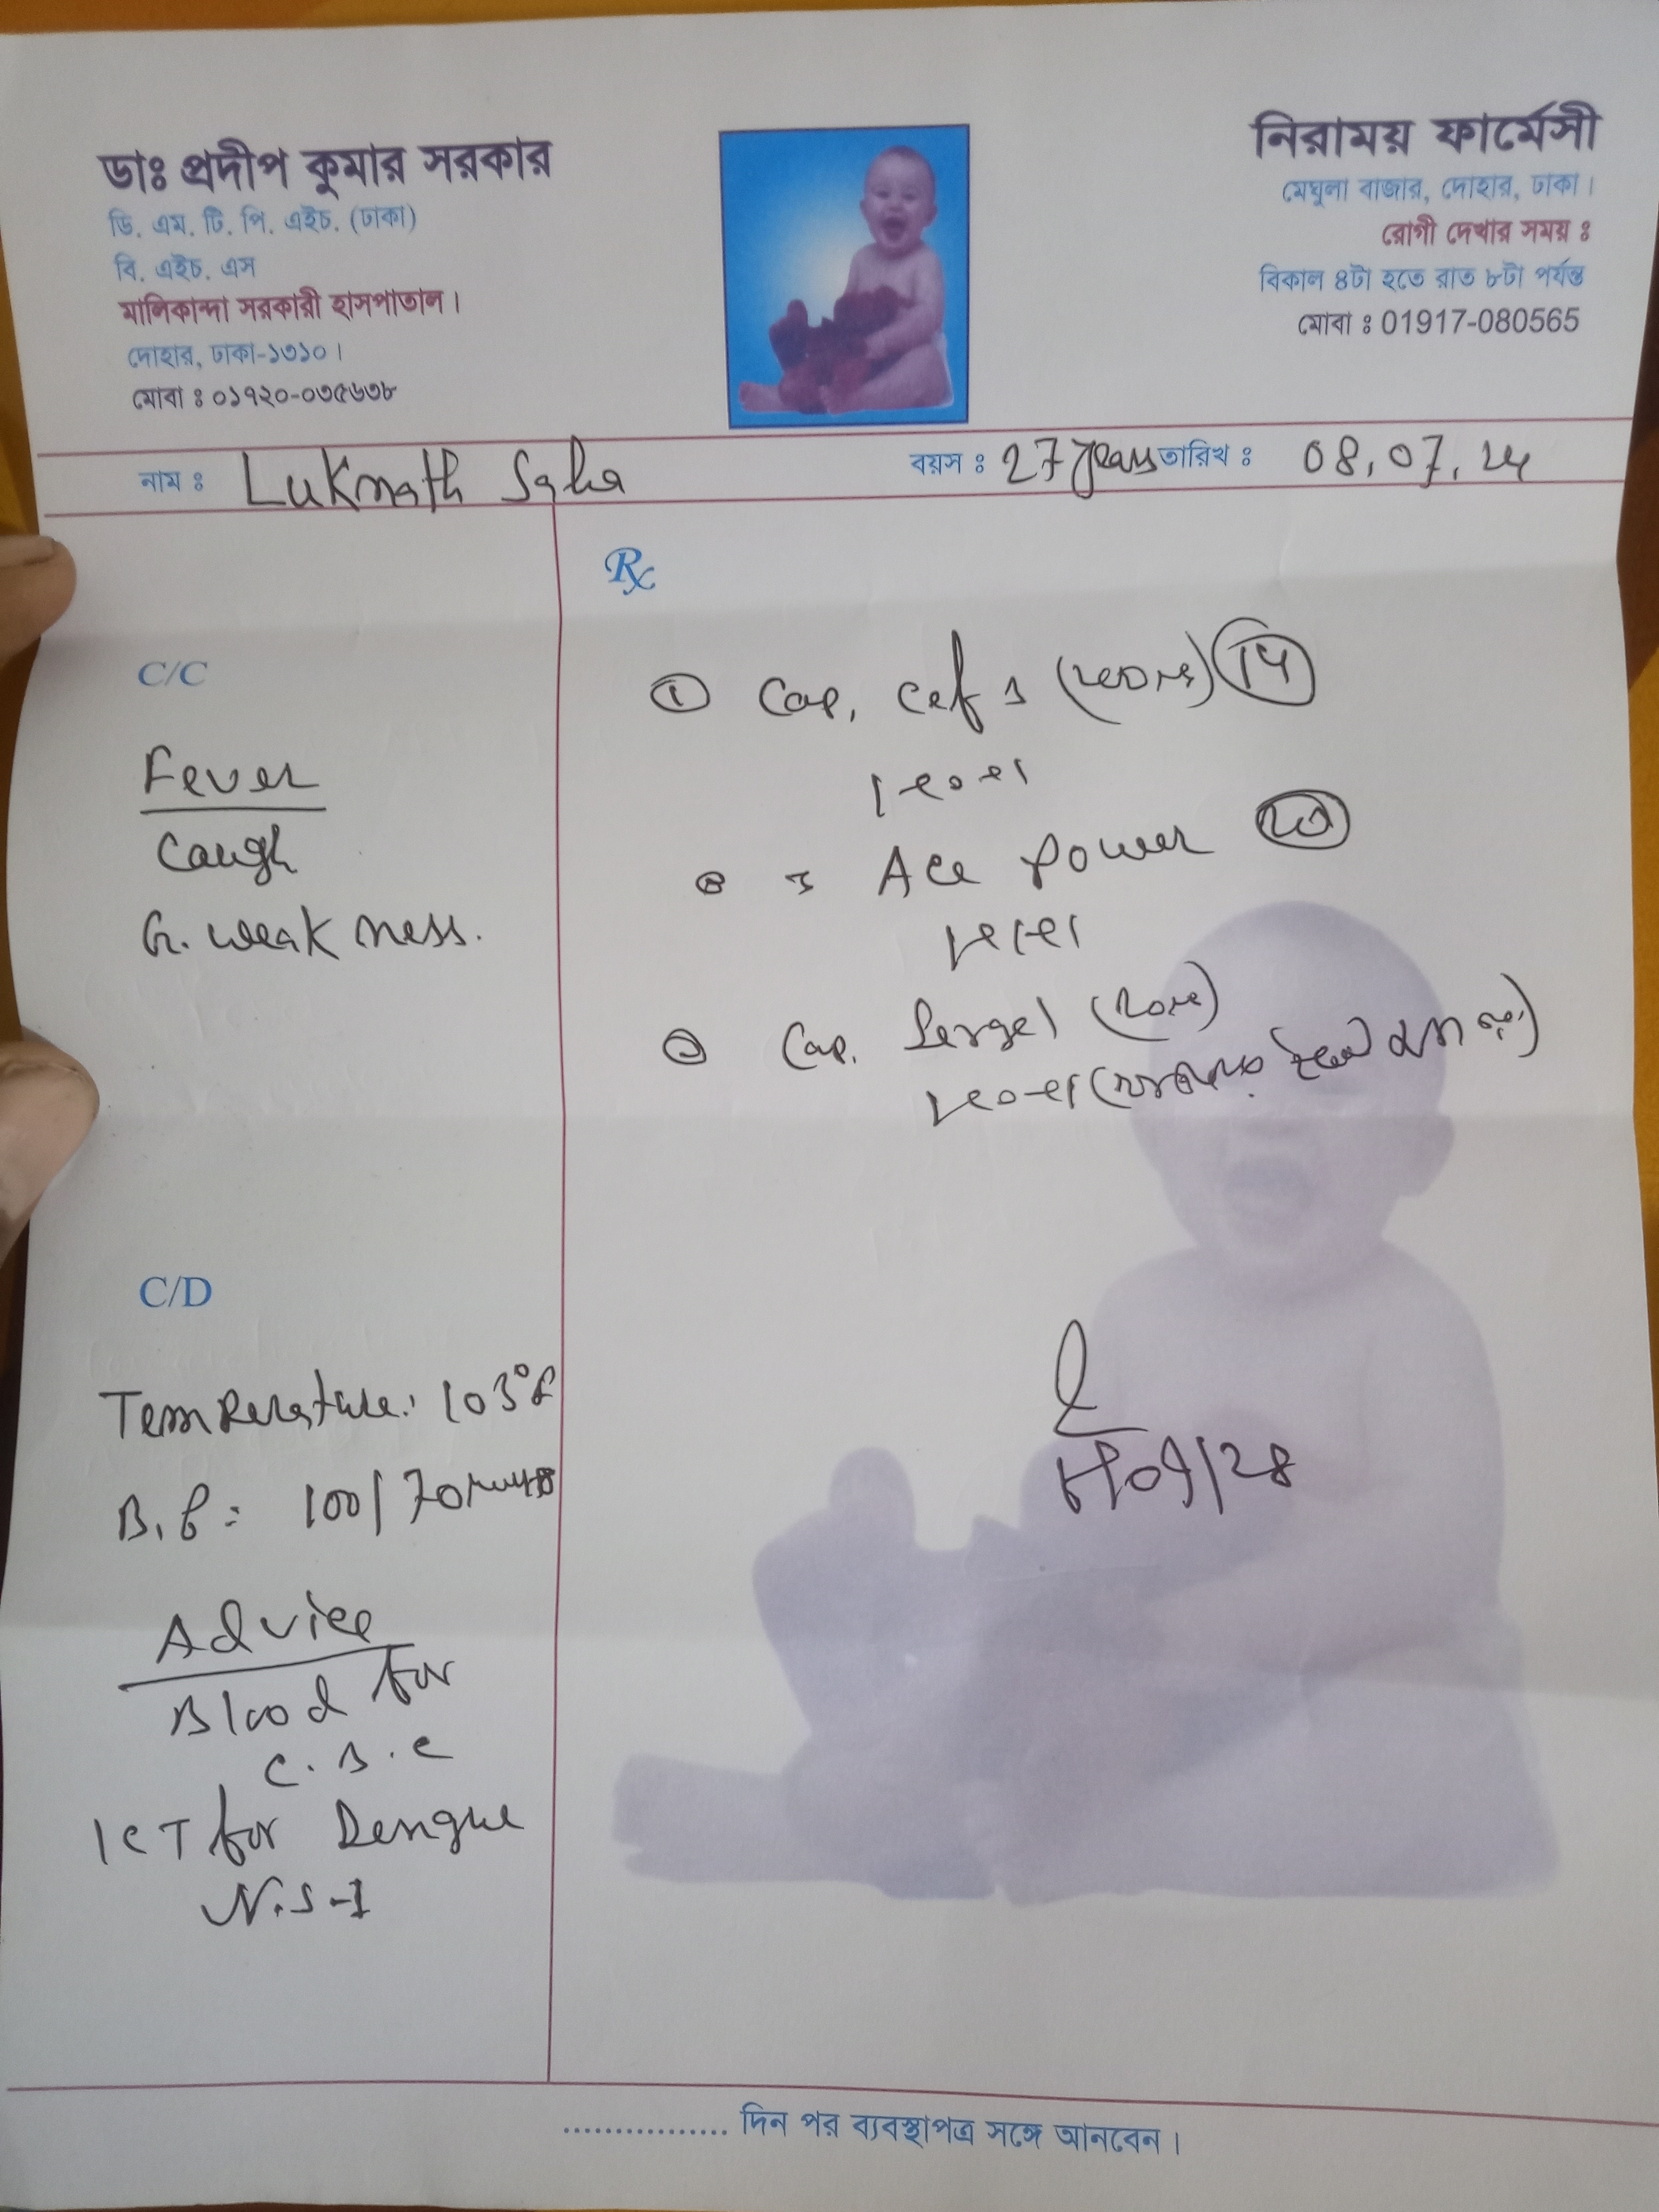 ডাঃ প্রদীপ কুমার সরকার
ডি. এম. টি. পি. এইচ. (ঢাকা)
বি. এইচ. এস
মালিকান্দা সরকারী হাসপাতাল।
দোহার, ঢাকা-১৩১০।
মোবা ঃ ০১৭২০-০৩৫৬৩৮
নিরাময় ফার্মেসী
মেঘুলা বাজার, দোহার, ঢাকা।
রোগী দেখার সময় ঃ
বিকাল ৪টা হতে রাত ৮টা পর্যন্ত
মোবা ঃ 01917-080565
নাম ঃ Luknath Saha বয়স ঃ 27 years তারিখ ঃ 08.07.24
C/C
Fever
Caugh
G. weakness.
C/D
Temperature: 103°F
B.P = 100/70
Advice
Blood for
C.B.C
ICT for Dengue
N.S-1
Rx
① Cap. Cef 3 (200mg) 14
1+0+1
Ace Power 20
1+1+1
③ Cap. Sergel (20mg)
1+0+1
................ দিন পর ব্যবস্থাপত্র সঙ্গে আনবেন।